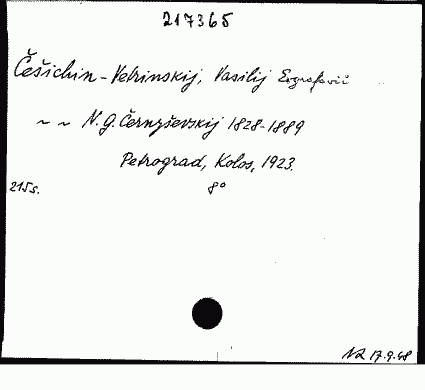 217365
Češichin-Vetrinskij, Vasilij Evgrafovič
~ ~ N. G. Černyševskij 1828-1889
Petrograd, Kolos, 1923.
215s. 8°
17.9.48